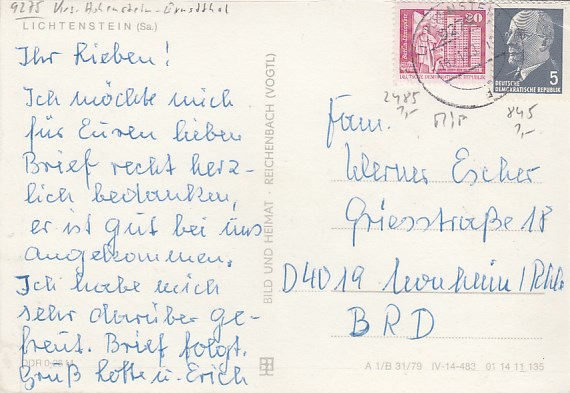 9275 Krs. Hohenstein-Ernstthal
LICHTENSTEIN (Sa.)
Ihr Lieben!
Ich möchte mich
für Euren lieben
Brief recht herz-
lich bedanken,
er ist gut bei uns
angekommen.
Ich habe mich
sehr darüber ge-
freut. Brief folgt.
Gruß Lotte u. Erich
DDR 0,25 M
BILD UND HEIMAT · REICHENBACH (VOGTL)
20
DEUTSCHE DEMOKRATISCHE REPUBLIK
5
DEUTSCHE
DEMOKRATISCHE REPUBLIK
2485
?,-
MiF
845
?,-
Fam.
Werner Escher
Griesstraße 18
D4019 Monheim/Rhld.
BRD
A 1/B 31/79 IV-14-482 01 14 11 135